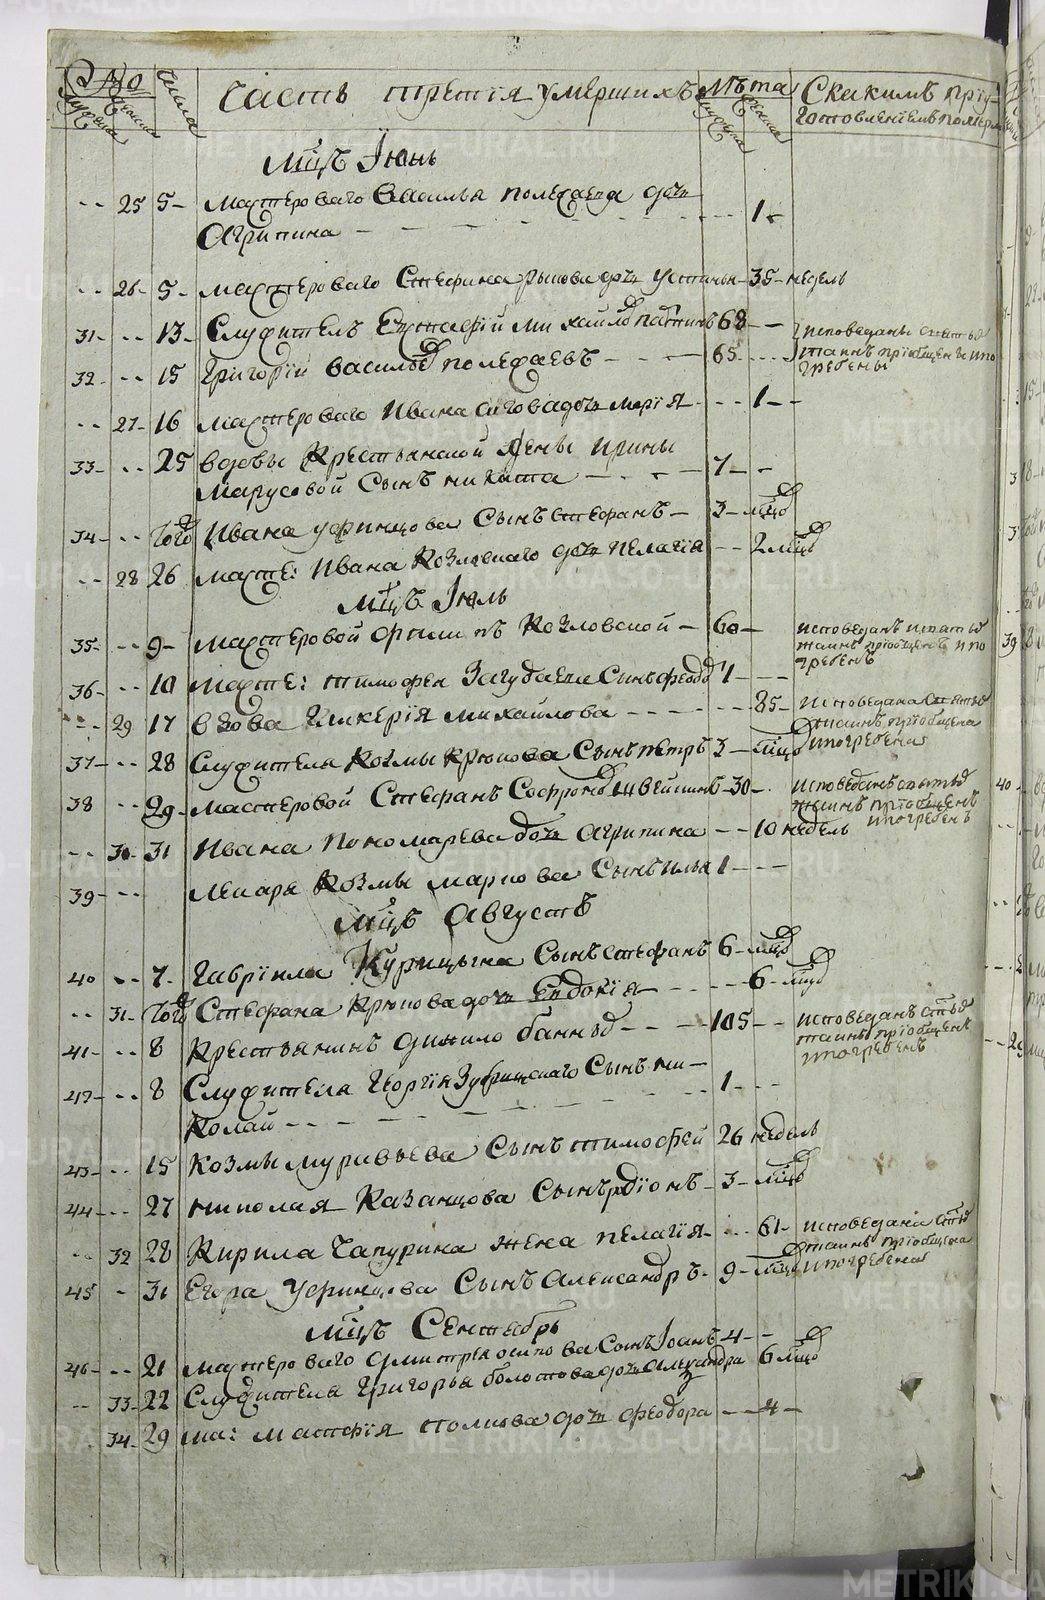 № Числа Часть третїя умершихъ Лѣта Скакимъ прїу-
готовленїемъ померли
Мцъ Іюнь
25 5 Мастероваго Василья Полежаева дочь
Агрипина 1
26 5 Мастероваго Стефана дочь Устинья 35 недель
31 13 Служитель Евстафїй Михайловъ 68 исповеданы святыхъ
32 15 Григорїй Васильевъ Полежаевъ 65 таинъ прїобщены ипо
гребены
27 16 Мастероваго Ивана дочь Марїя 1
33 25 вдовы Крестьянской жены Ирины
Марусовой Сынъ Никита 7
34 того Ивана Уфинцова Сынъ Стефанъ 3 мцо
28 26 масте: Ивана Козловскаго дочь Пелагїя 2 мцо
Мцъ Іюль
35 9 Мастеровой Филипъ Козловской 60 исповеданъ иматыхъ
таинъ прїобщенъ ипо
гребенъ
36 10 Масте: Тимофея Загудаева Сынъ Феодо 1
29 17 вдова Гликерїя Михайлова 85 исповедана Святыхъ
таинъ прїобщена
ипогребена
37 28 Служителя Козмы Крюкова Сынъ Петръ 3 мцо
38 29 Мастеровой Стефанъ Софроно 30 исповеданъ святыхъ
таинъ прїобщенъ
ипогребенъ
30 31 Ивана Пономарева дочь Агрипина 10 недель
39 Лекаря Козмы Маркова Сынъ Илья 1
Мцъ Августъ
40 7 Гаврїила Курицына Сынъ Стефанъ 6 мцо
31 того Стефана Крюкова дочь Евдокїя 6 мцо
41 8 Крестьянинъ Данило Банныхъ 105 исповеданъ стыхъ
таинъ прїобщенъ
ипогребенъ
42 8 Служителя Георгїя Зубрицкаго Сынъ Ни-
колай 1
43 15 Козмы Муравьева Сынъ Тимофей 26 недель
44 27 Николая Казанцова Сынъ Родїонъ 3 мцо
32 28 Кирила Чапурина жена Пелагїя 61 исповедана стыхъ
таинъ прїобщена
ипогребена
45 31 Егора Уфинцова Сынъ Александръ 9 мцо
Мцъ Сентябрь
46 21 Мастероваго Дмитрея Осипова Сынъ Іоанъ 4
33 22 Служителя Григорья Болотова дочь Александра 6 мцо
34 29 ма: Матфїя дочь Феодора 4
METRIKI.GASO-URAL.RU